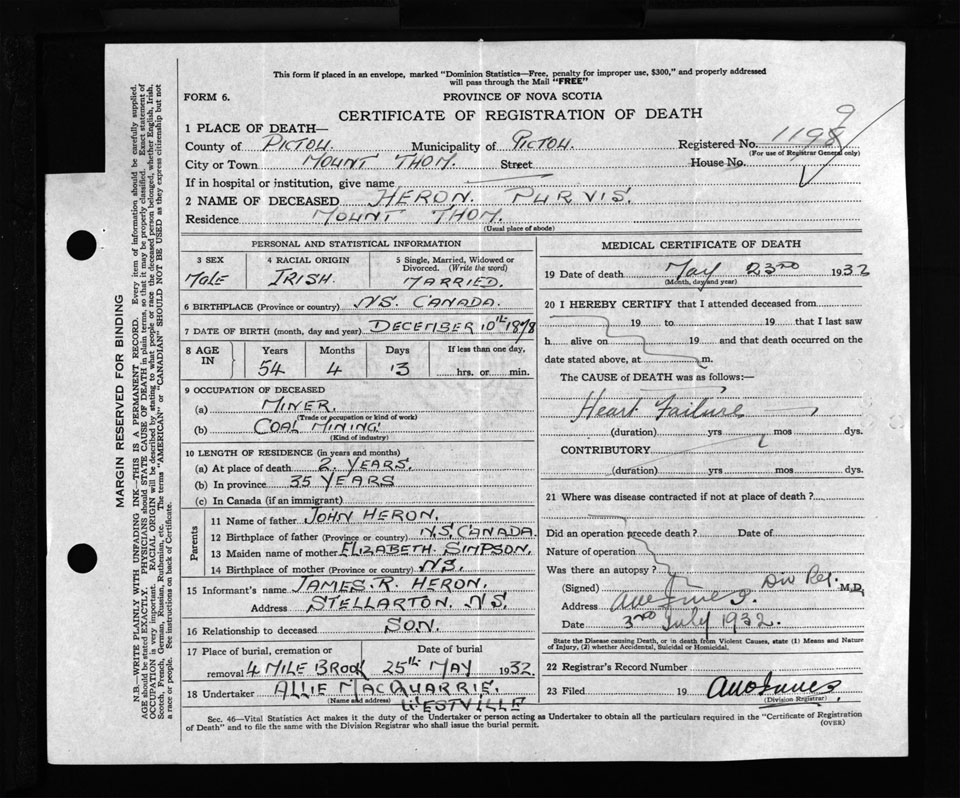 This form if placed in an envelope, marked "Dominion Statistics—Free, penalty for improper use, $300," and properly addressed
will pass through the Mail "FREE"
FORM 6.
PROVINCE OF NOVA SCOTIA
CERTIFICATE OF REGISTRATION OF DEATH
1 PLACE OF DEATH—
County of PICTOU. Municipality of PICTOU. Registered No. 1198 9
(For use of Registrar General only)
City or Town MOUNT THOM. Street House No.
If in hospital or institution, give name
2 NAME OF DECEASED HERON. PURVIS.
Residence MOUNT THOM.
(Usual place of abode)
PERSONAL AND STATISTICAL INFORMATION
3 SEX
MALE
4 RACIAL ORIGIN
IRISH.
5 Single, Married, Widowed or
Divorced. (Write the word)
MARRIED.
6 BIRTHPLACE (Province or country) N.S. CANADA.
7 DATE OF BIRTH (month, day and year) DECEMBER 10TH 1878
8 AGE IN
Years Months Days If less than one day,
54 4 13 hrs. or min.
9 OCCUPATION OF DECEASED
(a) MINER.
(Trade or occupation or kind of work)
(b) COAL MINING
(Kind of industry)
10 LENGTH OF RESIDENCE (in years and months)
(a) At place of death 2 YEARS.
(b) In province 35 YEARS
(c) In Canada (if an immigrant)
Parents
11 Name of father JOHN HERON.
12 Birthplace of father (Province or country) N.S. CANADA.
13 Maiden name of mother ELIZABETH. SIMPSON.
14 Birthplace of mother (Province or country) N.S.
15 Informant's name JAMES. R. HERON.
Address STELLARTON. N.S.
16 Relationship to deceased SON.
17 Place of burial, cremation or Date of burial
removal 4 MILE BROOK 25TH MAY 1932.
18 Undertaker ALLIE MACQUARRIE.
(Name and address) WESTVILLE
MEDICAL CERTIFICATE OF DEATH
19 Date of death May 23RD 1932
(Month, day and year)
20 I HEREBY CERTIFY that I attended deceased from
19 to 19 that I last saw
h alive on 19 and that death occurred on the
date stated above, at m.
The CAUSE of DEATH was as follows:—
Heart Failure
(duration) yrs mos dys.
CONTRIBUTORY
(duration) yrs mos dys.
21 Where was disease contracted if not at place of death?
Did an operation precede death? Date of
Nature of operation
Was there an autopsy?
(Signed) Div Reg. M.D.
Address
Date 3RD July 1932.
State the Disease causing Death, or in death from Violent Causes, state (1) Means and Nature
of Injury, (2) whether Accidental, Suicidal or Homicidal.
22 Registrar's Record Number
23 Filed 19
(Division Registrar)
Sec. 46—Vital Statistics Act makes it the duty of the Undertaker or person acting as Undertaker to obtain all the particulars required in the "Certificate of Registration
of Death" and to file the same with the Division Registrar who shall issue the burial permit.
(OVER)
MARGIN RESERVED FOR BINDING
N.B.—WRITE PLAINLY WITH UNFADING INK—THIS IS A PERMANENT RECORD. Every item of information should be carefully supplied.
AGE should be stated EXACTLY. PHYSICIANS should STATE CAUSE OF DEATH in plain terms, so that it may be properly classified. Exact statement of
OCCUPATION is very important. RACIAL ORIGIN will be described by stating to what people or race the deceased person belonged, whether English, Irish,
Scotch, French, German, Russian, Ruthenian, etc. The terms "AMERICAN" or "CANADIAN" SHOULD NOT BE USED as they express citizenship but not
a race or people. See instructions on back of Certificate.